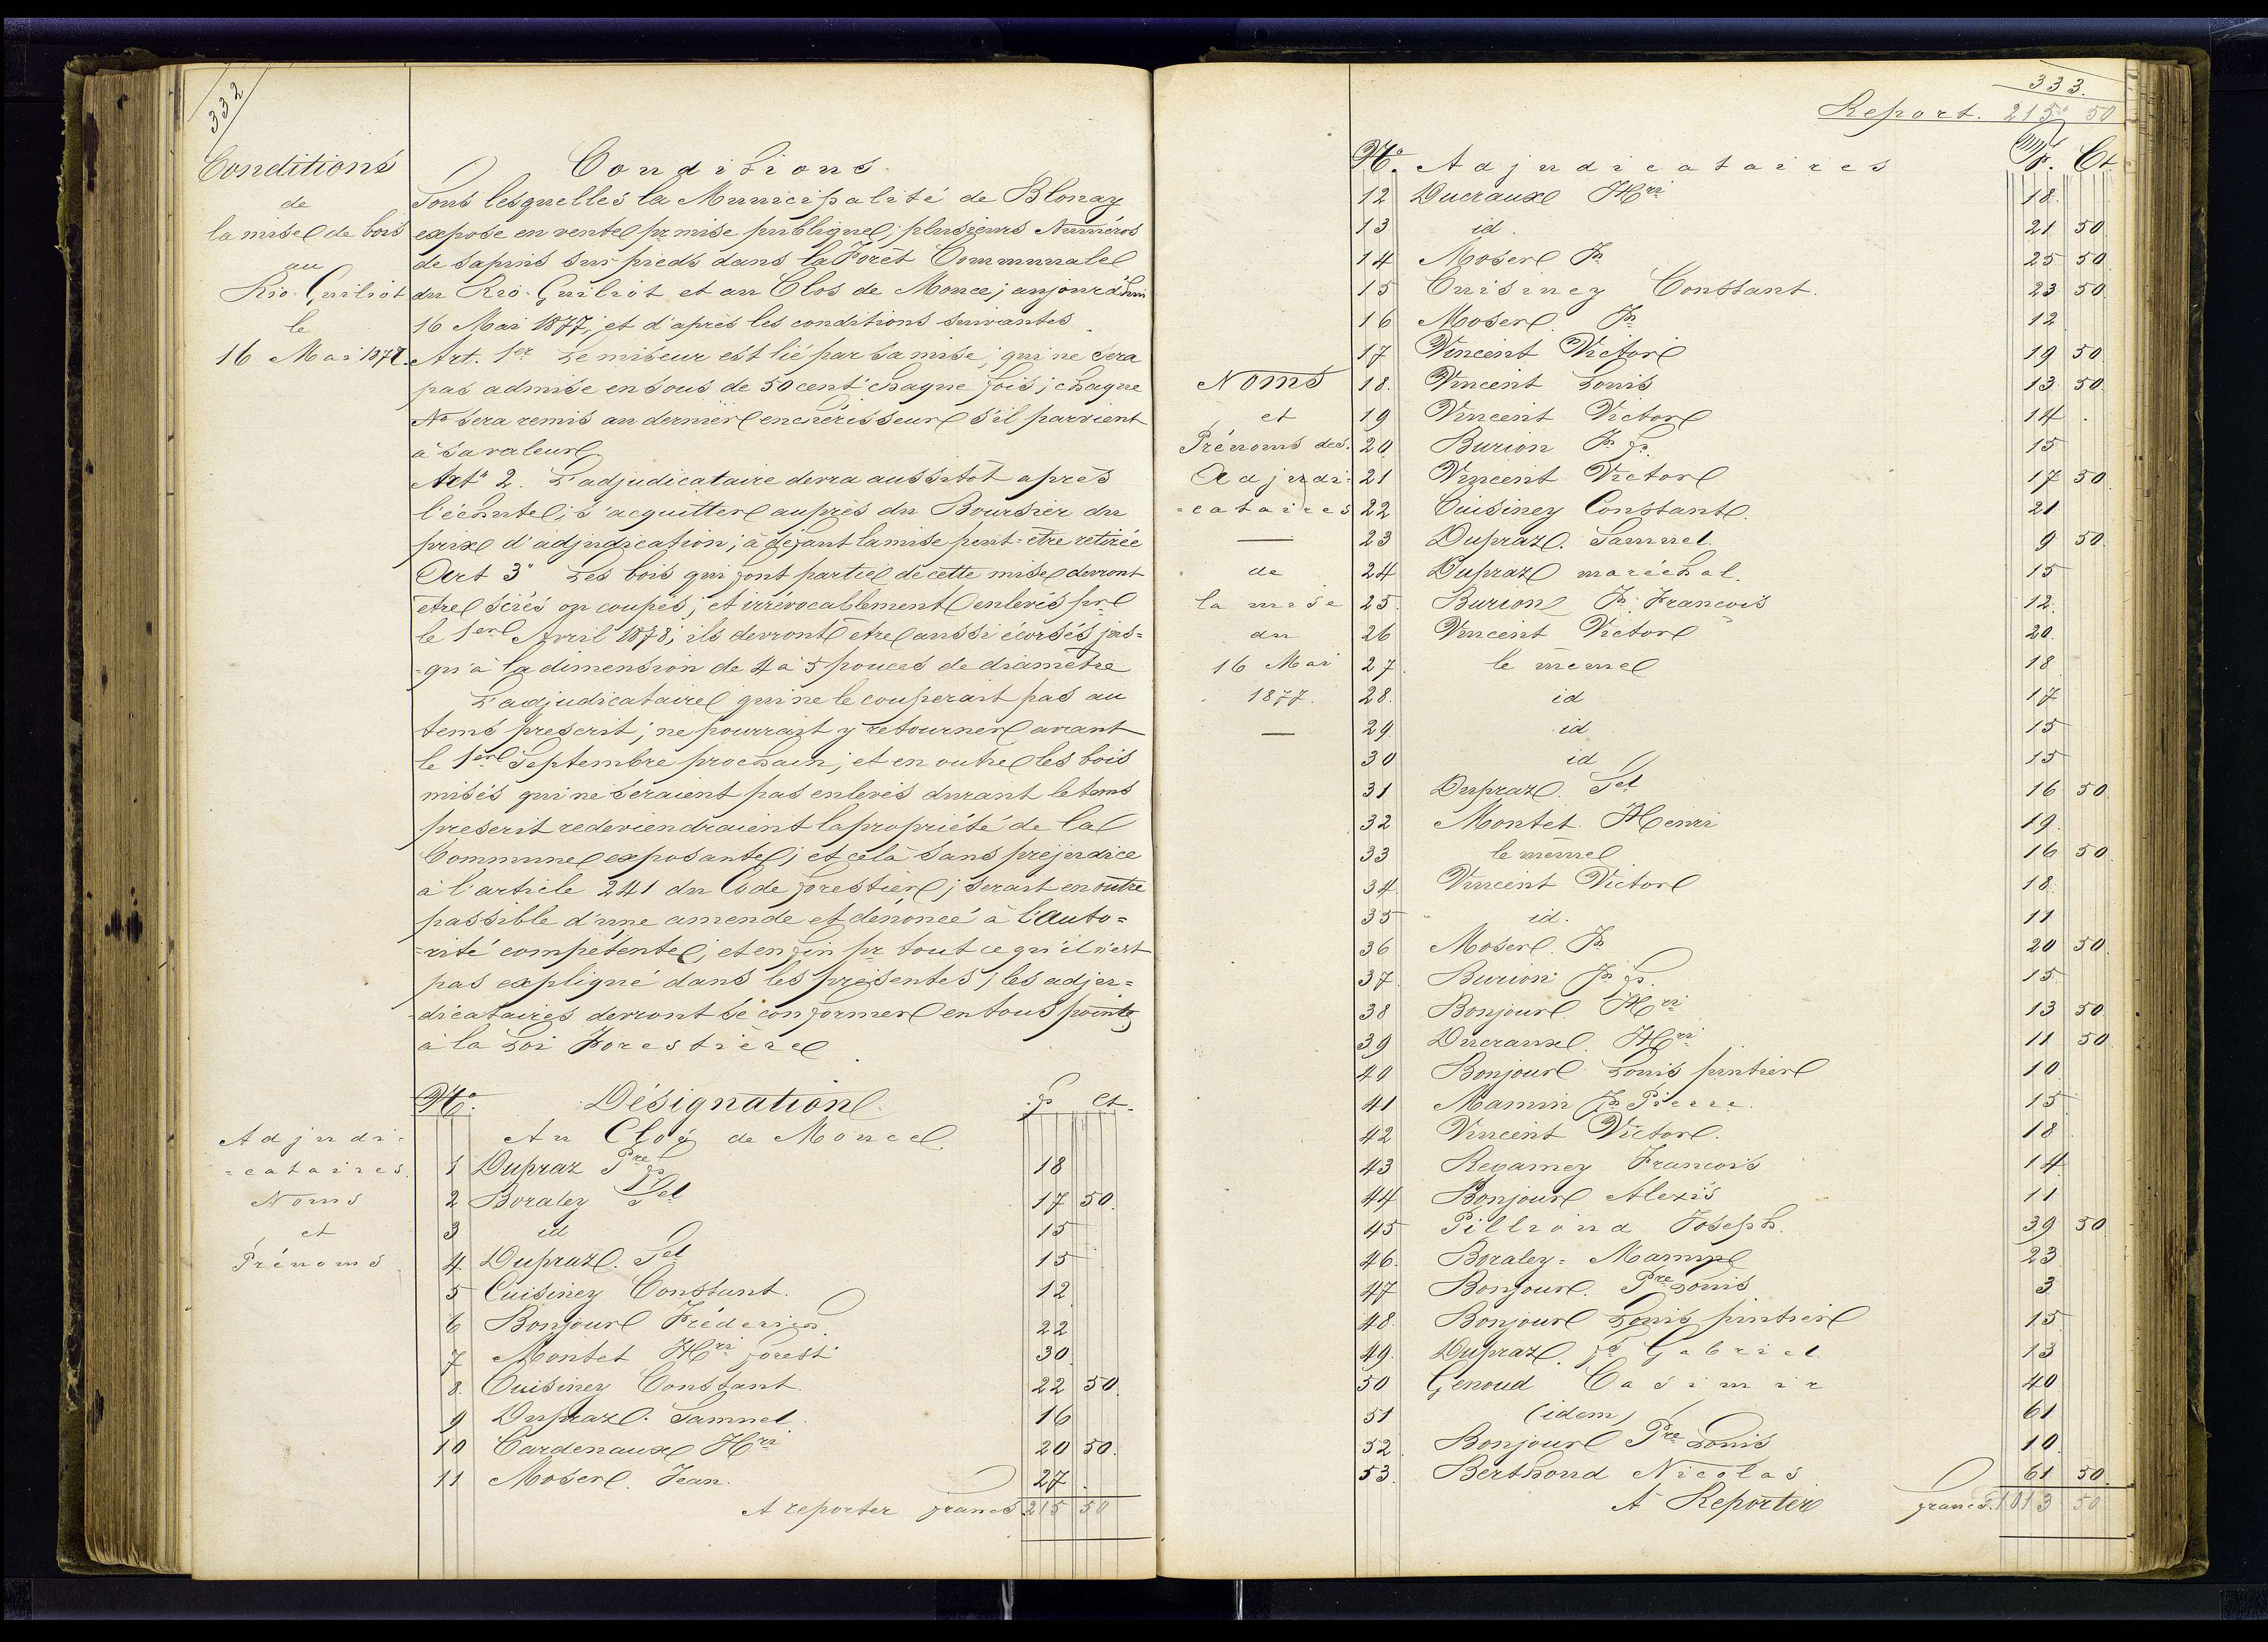 332
Conditions
de
la mise de bois
au
Rio-Guiliot
le
16 Mai 1877.
Conditions
Sous lesquelles la Municipalité de Blonay
expose en vente pr mise publique, plusieurs Numéros
de sapins sur pieds dans la Forêt Communale
du Rio-Guiliot et au Clos de Monce; aujourd'hui
16 Mai 1877, et d'après les conditions suivantes.
Art. 1er Le miseur est lié par sa mise, qui ne sera
pas admise en sous de 50 cent. chaque fois; chaque
No sera remis au dernier enchérisseur s'il parvient
à sa valeur
Art. 2. L'adjudicataire devra aussitôt après
l'échute, s'acquitter auprès du Boursier du
prix d'adjudication; à défaut la mise peut-être retirée
Art 3" Les bois qui font partie de cette mise devront
être sciés ou coupés, et irrévocablement enlevés pr
le 1er Avril 1878; ils devront être aussi écorsés jus=
=qu'à la dimension de 4 à 5 pouces de diamètre
L'adjudicataire qui ne le couperait pas au
tems prescrit; ne pourrait y retourner avant
le 1er Septembre prochain, et en outre les bois
misés qui ne seraient pas enlevés durant le tems
prescrit redeviendraient la propriété de la
Commune exposante; et celà sans préjudice
à l'article 241 du Code forestier; serait en outre
passible d'une amende et dénoncé à l'auto=
=rité compétente; et enfin pr tout ce qu'il n'est
pas expliqué dans les présentes; les adju=
=dicataires devront se conformer en tous points
à la Loi Forestière.
Adjudi=
=cataires.
Noms
et
Prénoms
No. Désignation fr ct.
Au Clos de Monce
1 Dupraz Pre fr 18
2 Boraley Sel 17 50.
3 id 15
4. Dupraz. Sel 15
5 Cuisiney Constant. 12
6 Bonjour Fréderich 22
7 Montet Hri forest. 30
8. Cuisiney Constant. 22 50.
9 Dupraz. Samuel. 16
10 Cardenaux Hri 20 50.
11 Moser. Jean. 27.
A reporter francs 215 50
333.
Report. 215 50
No. Adjudicataires fr. Ct.
Noms
et
Prénoms des.
Adjudi=
=cataires
de
la mise
du
16 Mai
1877.
12 Ducraux Hri 18.
13 id. 21 50
14 Moser Jn 25 50
15 Cuisiney Constant. 23 50
16 Moser. Jn 12
17 Vincent Victor 19 50
18. Vincent Louis 13 50
19 Vincent Victor 14.
20 Burion Jn fs. 15
21 Vincent Victor 17 50
22 Cuisiney Constant. 21
23 Dupraz. Samuel. 9 50
24 Dupraz maréchal. 15
25. Burion Jn. Francois 12.
26 Vincent Victor 20
27. le même 18
28. id 17
29. id 15
30 id 15
31 Dupraz. Sel 16 50
32 Montet. Henri 19.
33 le même 16 50
34. Vincent Victor 18.
35 id. 11
36 Moser. Jn 20 50
37. Burion Jn fs. 15
38 Bonjour. Hri 13 50
39 Ducraux. Hri 11 50
40 Bonjour. Louis pintier 10
41 Mamin Jn Pierre. 15
42 Vincent Victor. 18
43 Regamey Francois 14
44 Bonjour Alexis 11
45 Pilliond Joseph. 39 50
46. Boraley= Mamin 23
47 Bonjour. Pre Louis 3
48. Bonjour Louis pintier 15
49. Dupraz. fs Gabriel 13
50 Genoud Casimir 40
51 (idem) 61
52. Bonjour Pre Louis 10
53. Berthoud Nicolas 61 50
A Reporter francs. 1013 50